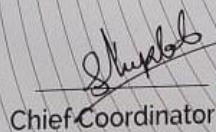 Chief Coordinator